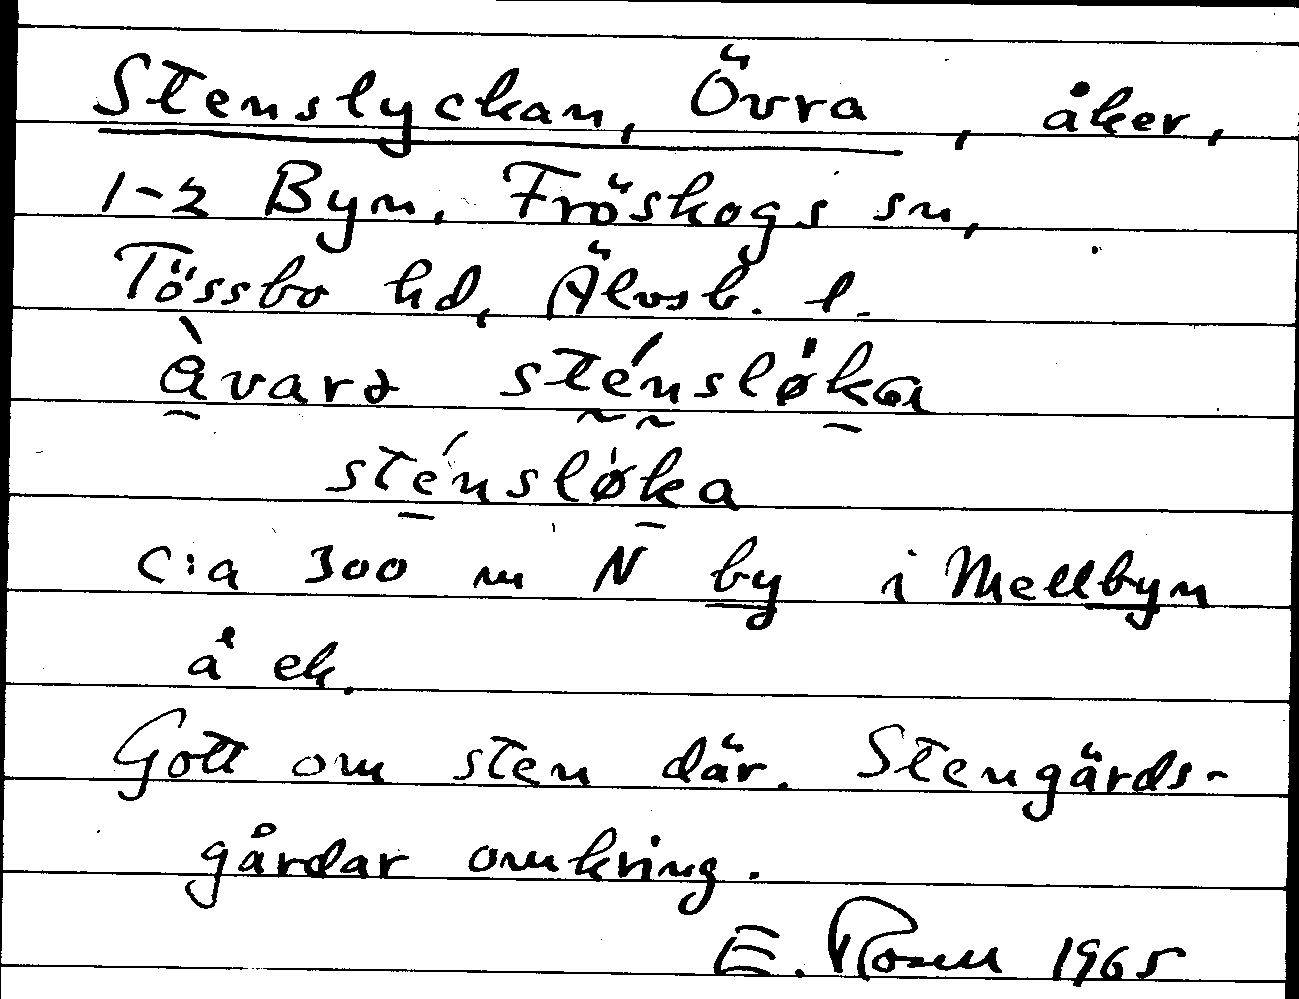 Stenslyckan, Övra, åker,
1-2 Byn, Fröskogs sn,
Tössbo hd, Älvsb. l.
àvarə sténsløka
sténsløka
c:a 300 m N by i Mellbyn
å ek.
Gott om sten där. Stengärds-
gårdar omkring.
E. Rosell 1965